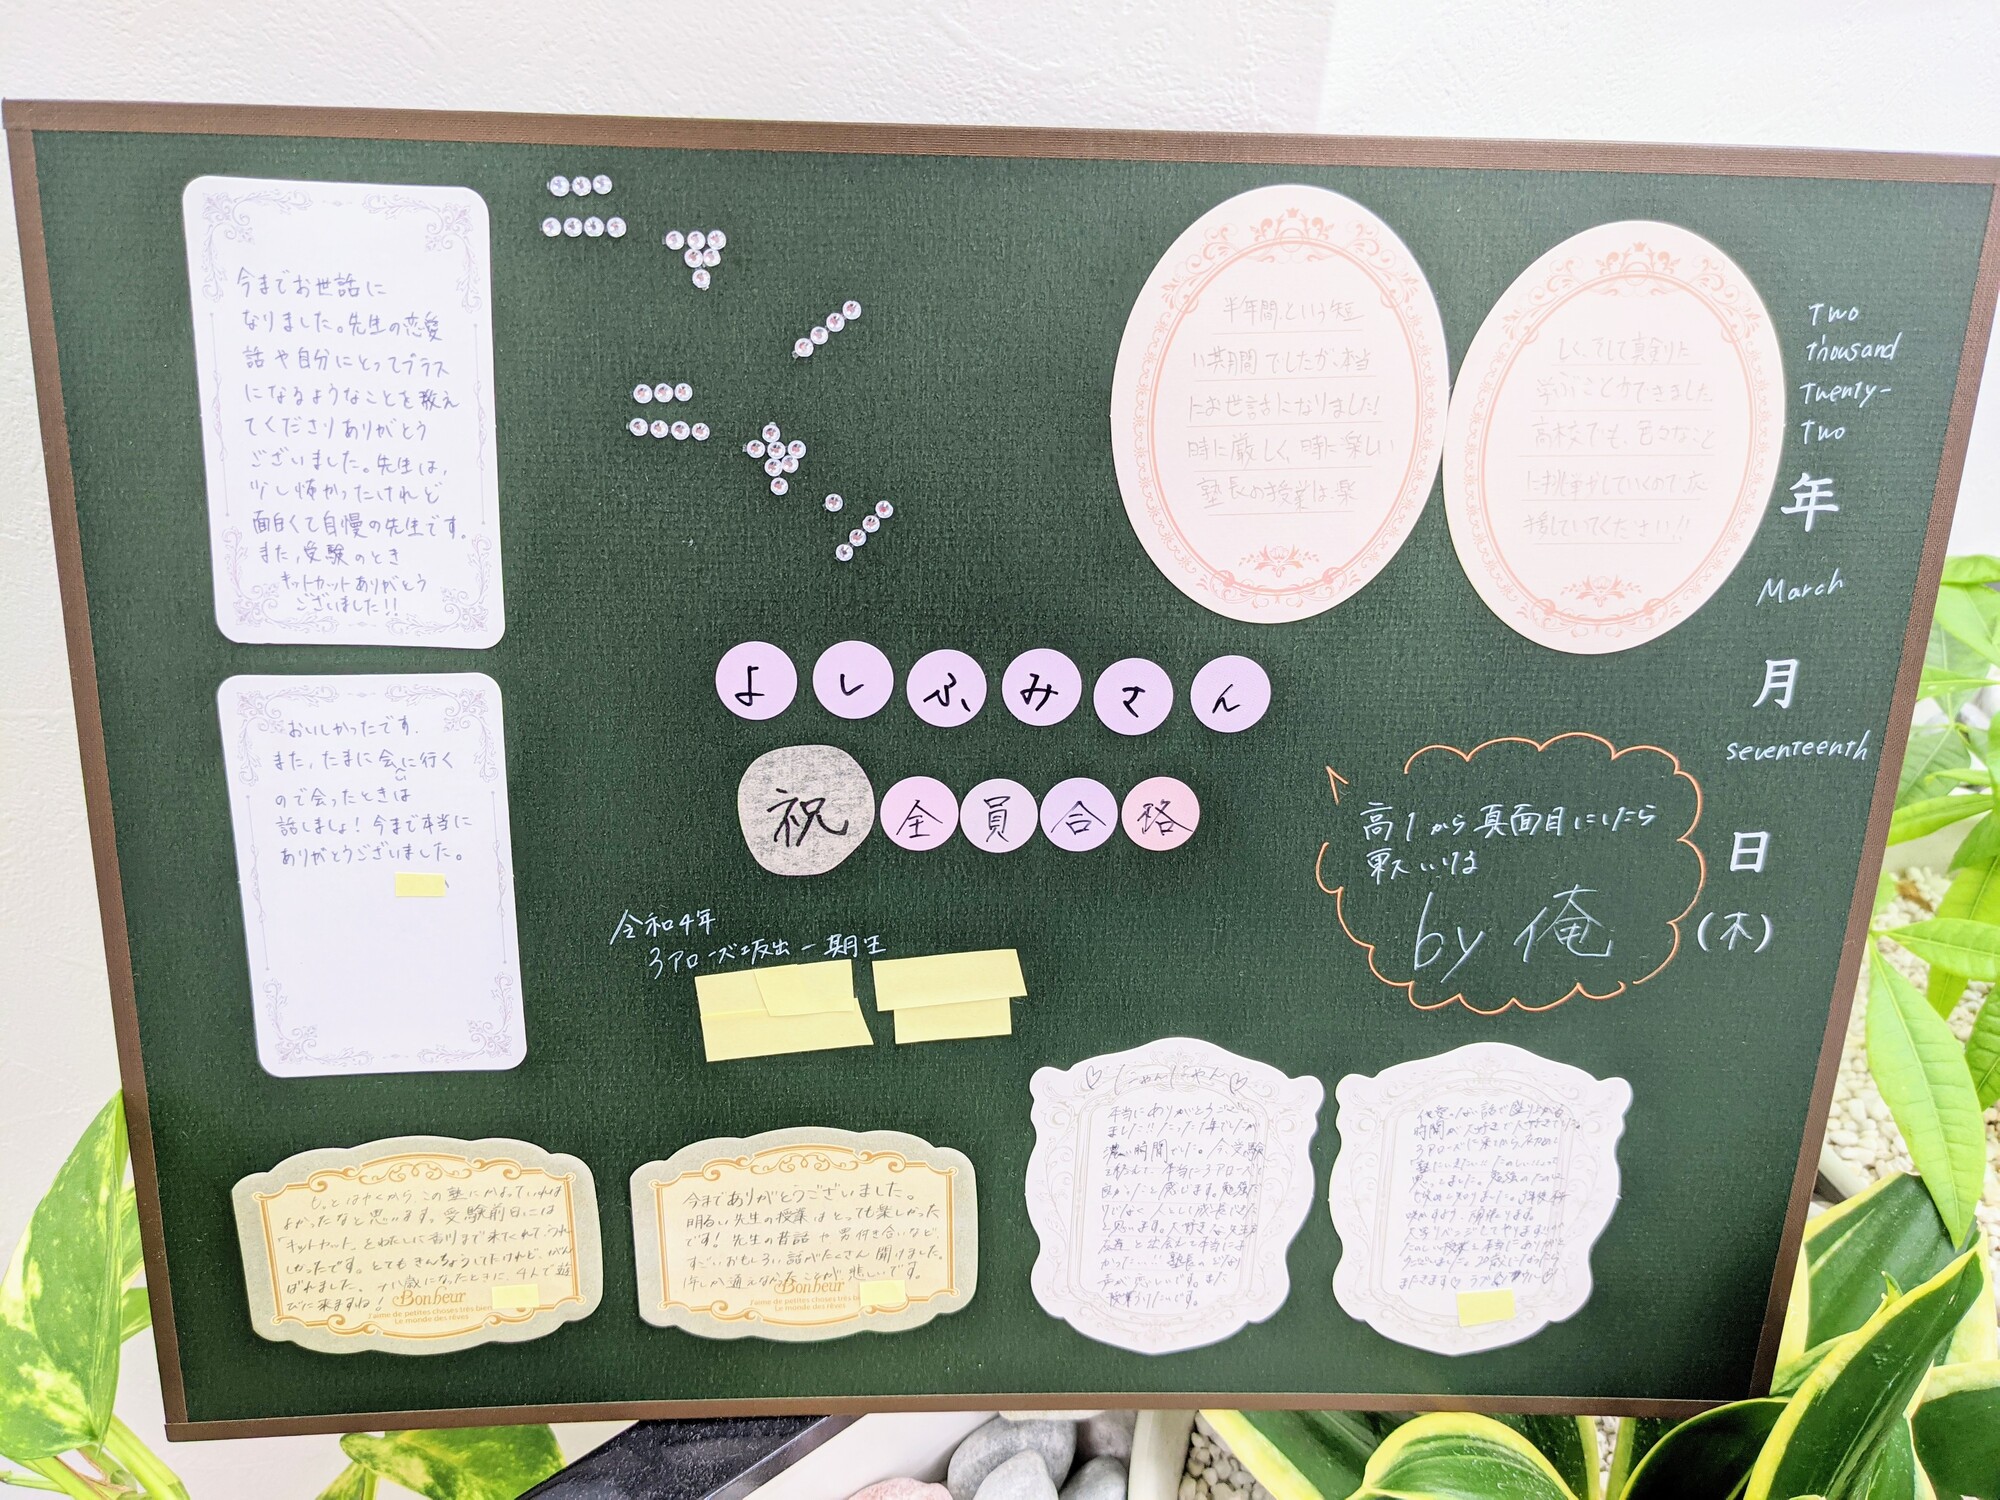 今までお世話に
なりました。先生の恋愛
話や自分にとってプラス
になるようなことを教え
てくださりありがとう
ございました。先生は、
少し怖かったけれど
面白くて自慢の先生です。
また、受験のとき
キットカットありがとう
ございました!!
おいしかったです.
また,たまに会いに行く
ので会ったときは
話しましょ!今まで本当に
ありがとうございました。
半年間という短
い期間でしたが、本当
にお世話になりました!
時に厳しく、時に楽しい
塾長の授業は楽
しく、そして真剣に
学ぶことができました
高校でも色々なこと
に挑戦していくので応
援していてください!!
Two
thousand
Twenty-
Two
年
March
月
seventeenth
日
(木)
よしふみさん
祝全員合格
高1から真面目にしたら
東大いける
by 俺
令和4年
3アローズ坂出一期生
もっとはやくから、この塾にかよっていれば
よかったなと思います。受験前日には
「キットカット」をわたしに香川まで来てくれて、うれ
しかったです。とてもきんちょうしてたけれど、がん
ばれました。十八歳になったときに、4人で遊
びに来ますね!
Bonheur
J'aime de petites choses très bien
Le monde des rêves
今までありがとうございました。
明るい先生の授業はとっても楽しかった
です!先生の昔話や男付き合いなど、
すごいおもしろい話がたくさん聞けました。
1年しか通えなかったことが悲しいです。
Bonheur
J'aime de petites choses très bien
Le monde des rêves
♡にゃんにゃん♡
本当にありがとうござい
ました!!たった1年でしたが
濃い時間でした。
時間が大好きで大好きでした。